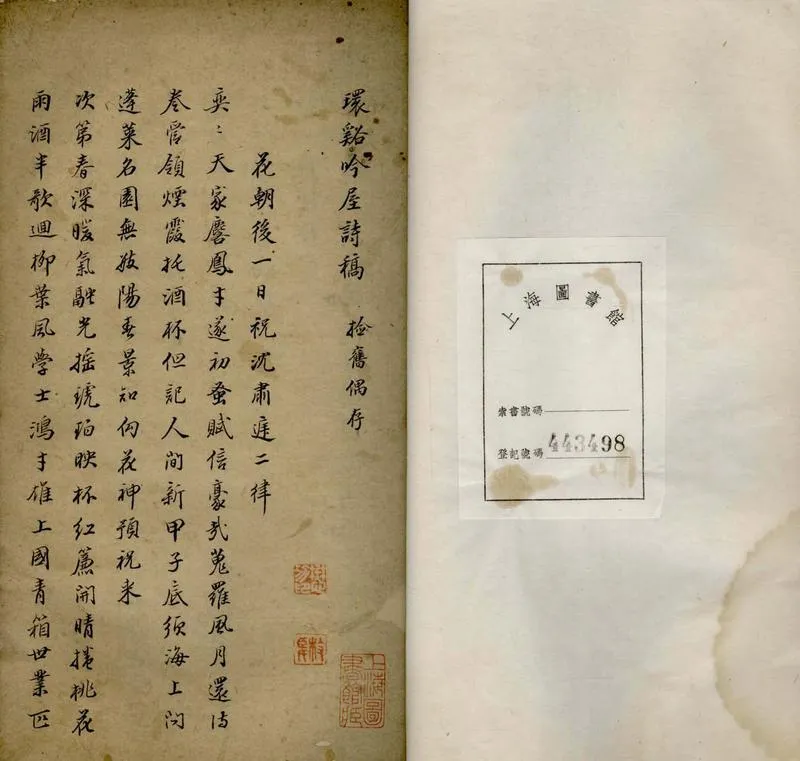 上海圖書館
索書號碼
登記號碼 443498
環谿吟屋詩稿 撿舊偶存
花朝後一日祝沈肅庭二律
奕〻天家麐鳳才遂初蚤賦信豪哉蒐羅風月還詩
卷管領煙霞托酒杯但記人間新甲子底須海上問
蓬萊名園無數陽春景知向花神預祝來
次第春深暖氣融光搖琥珀映杯紅簾開晴捲桃花
雨酒半歌迴柳葉風學士鴻才雄上國青箱世業匹
上海圖書館藏